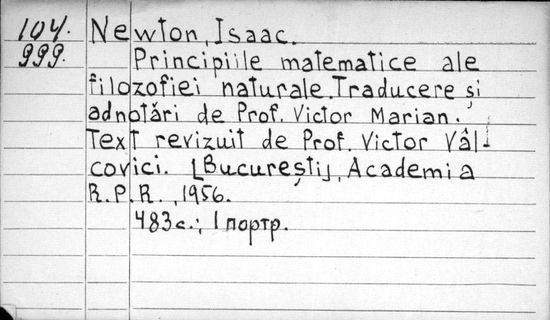 104. Newton, Isaac.
999. Principiile matematice ale
filozofiei naturale. Traducere și
adnotări de Prof. Victor Marian.
Text revizuit de Prof. Victor Vâl-
covici. [București], Academia
R.P.R., 1956.
483 с.; 1 портр.